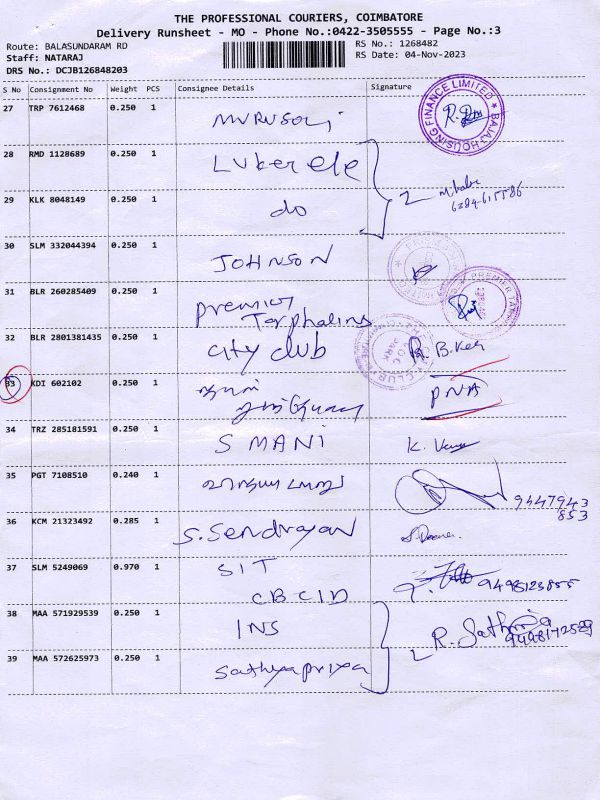 THE PROFESSIONAL COURIERS, COIMBATORE
Delivery Runsheet - MO - Phone No.:0422-3505555 - Page No.:3
Route: BALASUNDARAM RD
Staff: NATARAJ
DRS No.: DCJB126848203
RS No.: 1268482
RS Date: 04-Nov-2023
S No Consignment No Weight PCS Consignee Details Signature
27 TRP 7612468 0.250 1
BAJAJ HOUSING FINANCE LIMITED
28 RMD 1128689 0.250 1
29 KLK 8048149 0.250 1 do
2
30 SLM 332044394 0.250 1 JOHNSON
31 BLR 260285409 0.250 1 premier
Tarphalins
32 BLR 2801381435 0.250 1 city club R. B.
33 KDI 602102 0.250 1
PNA
34 TRZ 285181591 0.250 1 S MANI K.
35 PGT 7108510 0.240 1
9447943
853
36 KCM 21323492 0.285 1 S. Sendrayan
37 SLM 5249069 0.970 1 SIT
CBCID 9498123855
38 MAA 571929539 0.250 1 INS
R.
39 MAA 572625973 0.250 1 Sathyapriya